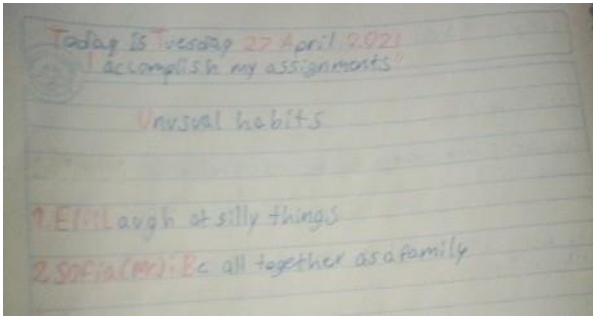 Today Is Tuesday 27 April 2021
"I accomplish my assignments"
Unusual habits
1. Eli: Laugh at silly things
2. Sofia (Me): Be all together as a family